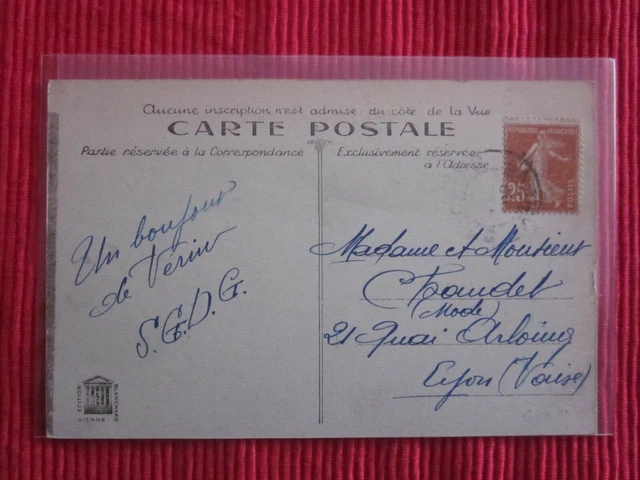 Aucune inscription n'est admise du côté de la Vue
CARTE POSTALE
Partie réservée à la Correspondance
Exclusivement réservée
à l'Adresse
REPUBLIQUE FRANÇAISE
25
POSTES
Un bonjour
de Vérin
S.G.D.G.
Madame et Monsieur
Chaudet
(Mode)
21 Quai Arloing
Lyon (Vaise)
EDITION
BLANCHARD
VIENNE